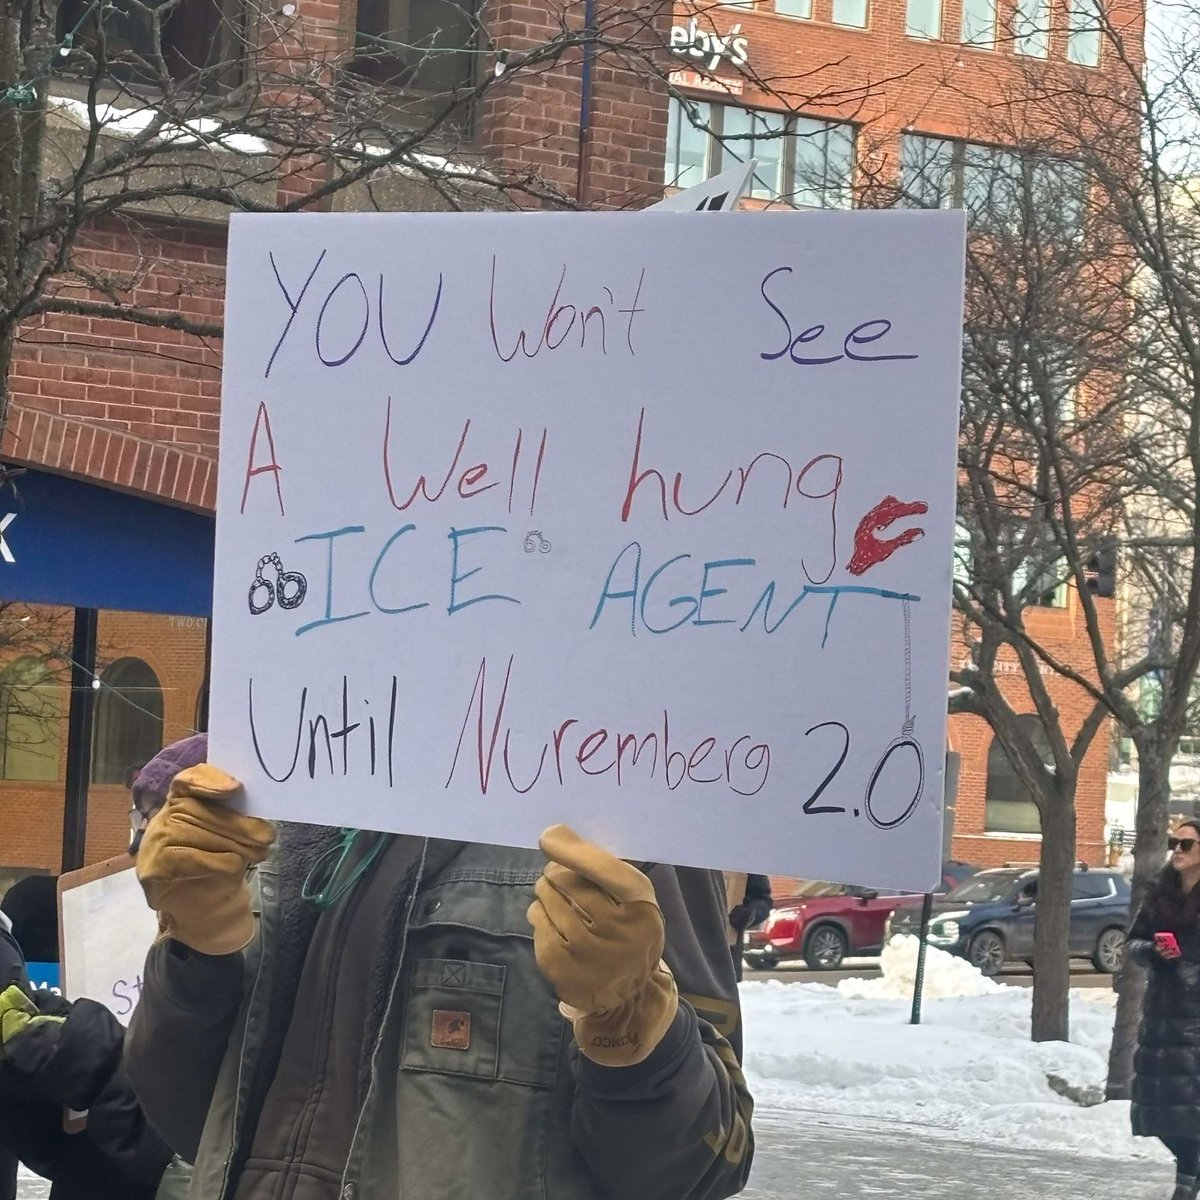 eby's
YOU Won't See
A Well hung
ICE AGENT
Until Nuremberg 2.0
KINCO